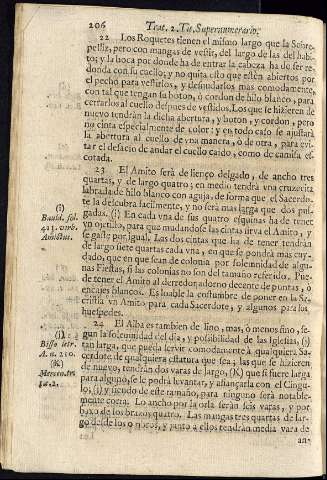 206 Trat. 2. Tit. Superaumerario.
22 Los Roquetes tienen el mismo largo que la Sobre-
pelliz, pero con mangas de vestir, del largo de las del habi-
to; y la boca por donde ha de entrar la cabeza ha de ser re-
donda con su cuello; y no quita esto que estèn abiertos por
el pecho para vestirlos, y desnudarlos mas comodamente,
con tal que tengan su boton, ò cordon de hilo blanco, para
cerrarlos al cuello despues de vestidos. Los que se hizieren de
nuevo tendràn la dicha abertura, y boton, y cordon, pero
no cinta especialmente de color; y en todo caso se ajustarà
la abertura al cuello de vna manera, ò de otra, para evi-
tar el desacio de andar el cuello caido, como de camisa es-
cotada.
23 El Amito serà de lienço delgado, de ancho tres
quartas, y de largo quatro; en medio tendrà vna cruzecita
labrada de hilo blanco con aguja, de forma que el Sacerdo-
te la descubra facilmente, y no serà mas larga que dos pul-
gadas. (i) En cada vna de sus quatro esquinas ha de tener
vn ojetillo, para que mudandose las cintas sirva el Amito, y
se gaste por igual. Las dos cintas que ha de tener tendràn
de largo siete quartas cada vna, en que se pondrà mas cuy-
dado, que en que sean de colonia por solemnidad de algu-
nas Fiestas, si las colonias no son del tamaño referido. Pue-
de tener el Amito al derredor adorno decente de puntas, ò
encajes blancos. Es loable la costumbre de poner en la Sa-
cristia vn Amito para cada Sacerdote, y algunos para los
huespedes.
24 El Alba es tambien de lino, mas, ò menos fino, se-
gun la solemnidad del dia, y possibilidad de las Iglesias, (j)
tan larga, que pueda servir comodamente à qualquiera Sa-
cerdote de qualquiera estatura que sea; las que se hizieren
de nuevo, tendràn dos varas de largo, (K) que si fuere larga
para alguno, se le podrà levantar, y afiançarla con el Cingu-
lo; (l) y siendo de este tamaño, para ninguno serà notable-
mente corta. Lo ancho por la orla seràn seis varas, y por
baxo de los braços quatro. Las mangas tres quartas de lar-
go desde los ombros, y junto à ellos tendràn media vara de
an-
(i)
Bauld. fol.
Amictus.
(j)
Bisso
A. n. 210.
(K)